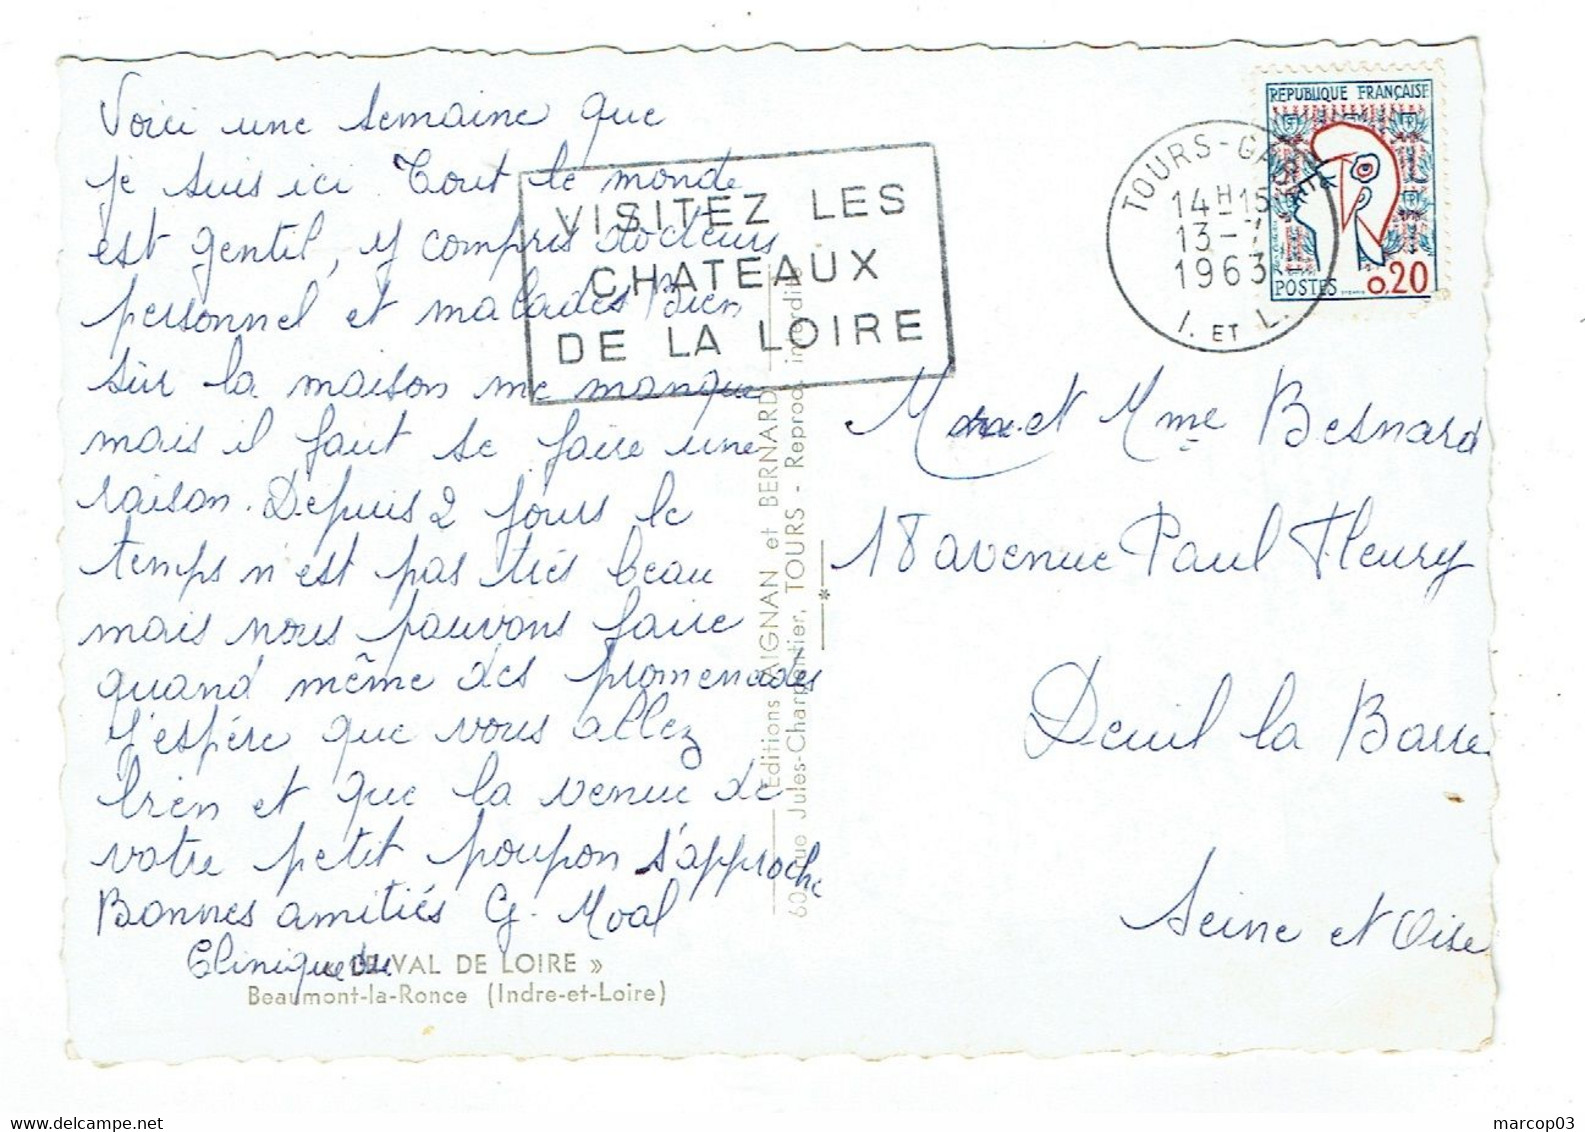 Voici une semaine que
je suis ici. Tout le monde
est gentil, y compris docteurs
personnel et malades. Bien
sûr la maison me manque
mais il faut se faire une
raison. Depuis 2 jours le
temps n'est pas très beau
mais nous pouvons faire
quand même des promenades
J'espère que vous allez
bien et que la venue de
votre petit poupon s'approche
Bonnes amitiés G. Moal
Clinique du
« LE VAL DE LOIRE »
Beaumont-la-Ronce (Indre-et-Loire)
VISITEZ LES
CHATEAUX
DE LA LOIRE
Editions et BERNARD
60, rue Jules-Charpentier, TOURS - Reprod. interdite
*
TOURS-GARE
14H15
13-7
1963
I. ET L.
REPUBLIQUE FRANÇAISE
POSTES 0,20
M et Mme Besnard
18 avenue Paul Fleury
Deuil la Barre
Seine et Oise
marcop03